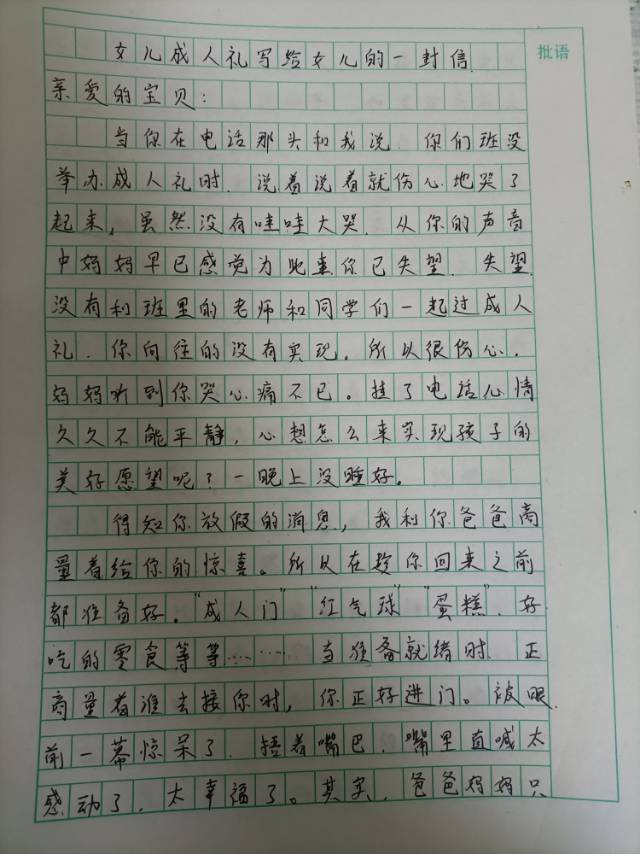 批语
女儿成人礼写给女儿的一封信
亲爱的宝贝：
当你在电话那头和我说.你们班没
举办成人礼时.说着说着就伤心地哭了
起来，虽然没有哇哇大哭.从你的声音
中妈妈早已感觉为此事你已失望.失望
没有和班里的老师和同学们一起过成人
礼.你向往的没有实现，所以很伤心.
妈妈听到你哭心痛不已。挂了电话心情
久久不能平静，心想怎么来实现孩子的
美好愿望呢？一晚上没睡好。
得知你放假的消息，我和你爸爸商
量着给你的惊喜。所以在趁你回来之前
都准备好。“成人门”“红气球”“蛋糕”.好
吃的零食等等……当准备就绪时.正
商量着谁去接你时，你正好进门。被眼
前一幕惊呆了.捂着嘴巴.嘴里直喊太
感动了，太幸福了。其实，爸爸妈妈只